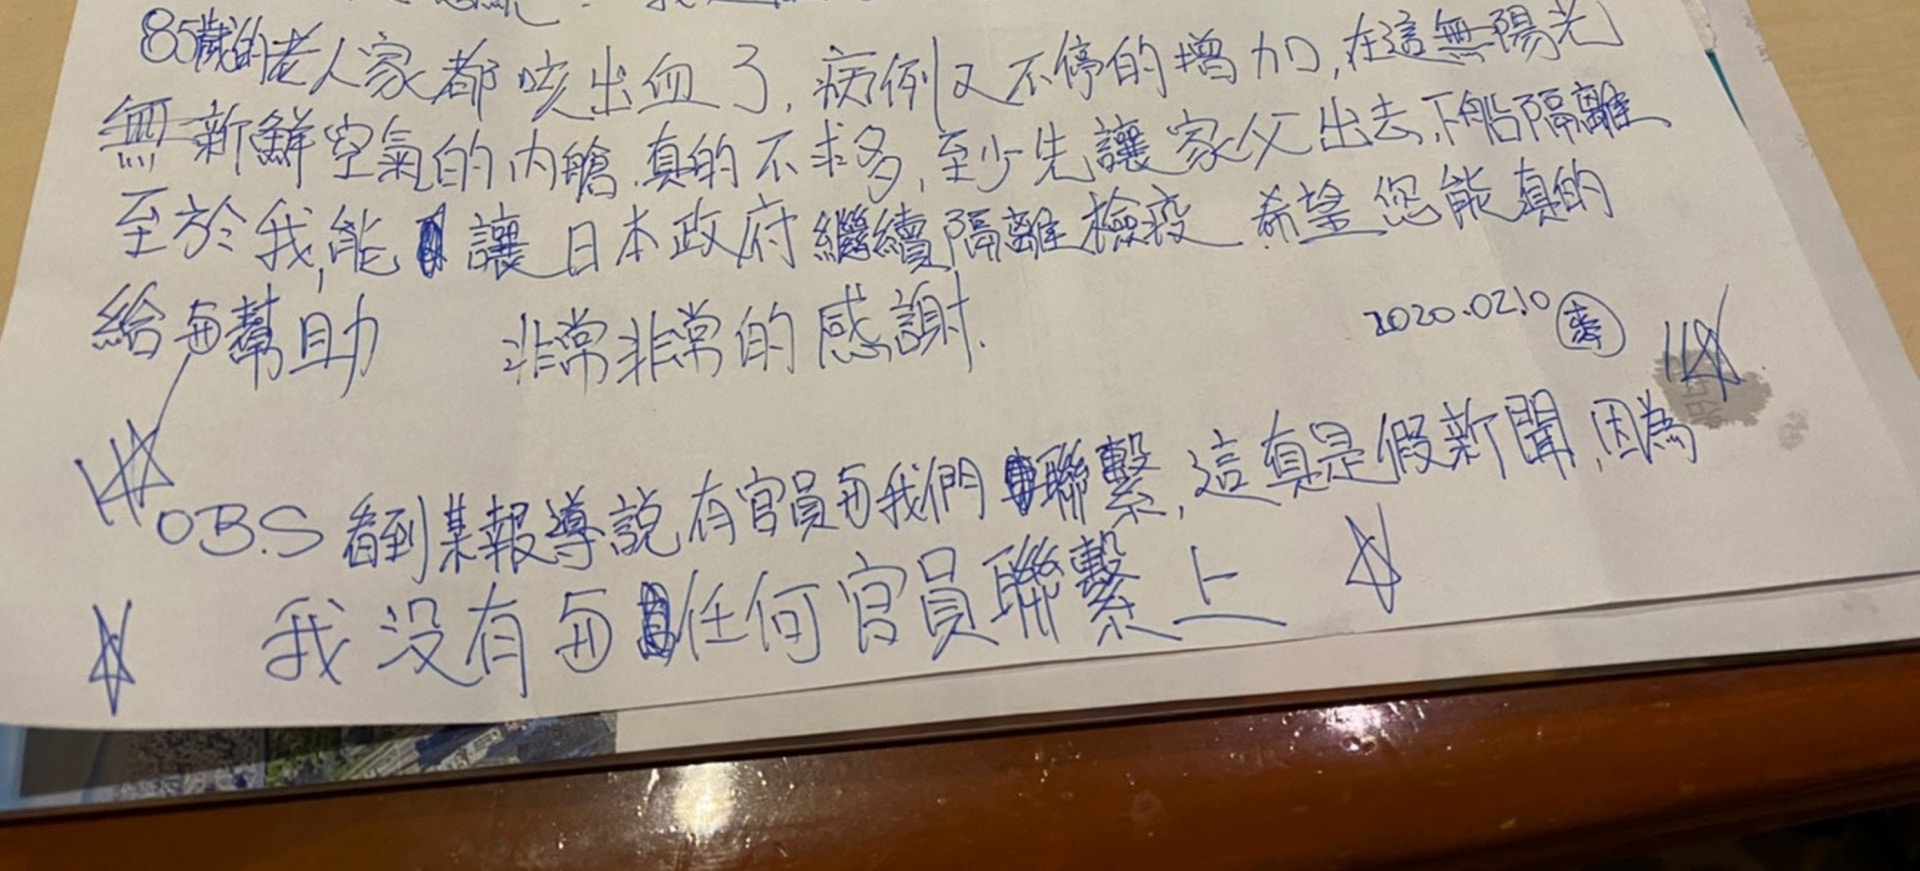 85歲的老人家都咳出血了，病例又不停的增加，在這無陽光
無新鮮空氣的內艙，真的不求多，至少先讓家父出去，下船隔離
至於我，能讓日本政府繼續隔離檢疫 希望您能真的
給与幫助 非常非常的感謝.
2020.02.10
OB.S 看到某報導說有官員与我們聯繫，這真是假新聞，因為
我沒有与任何官員聯繫上